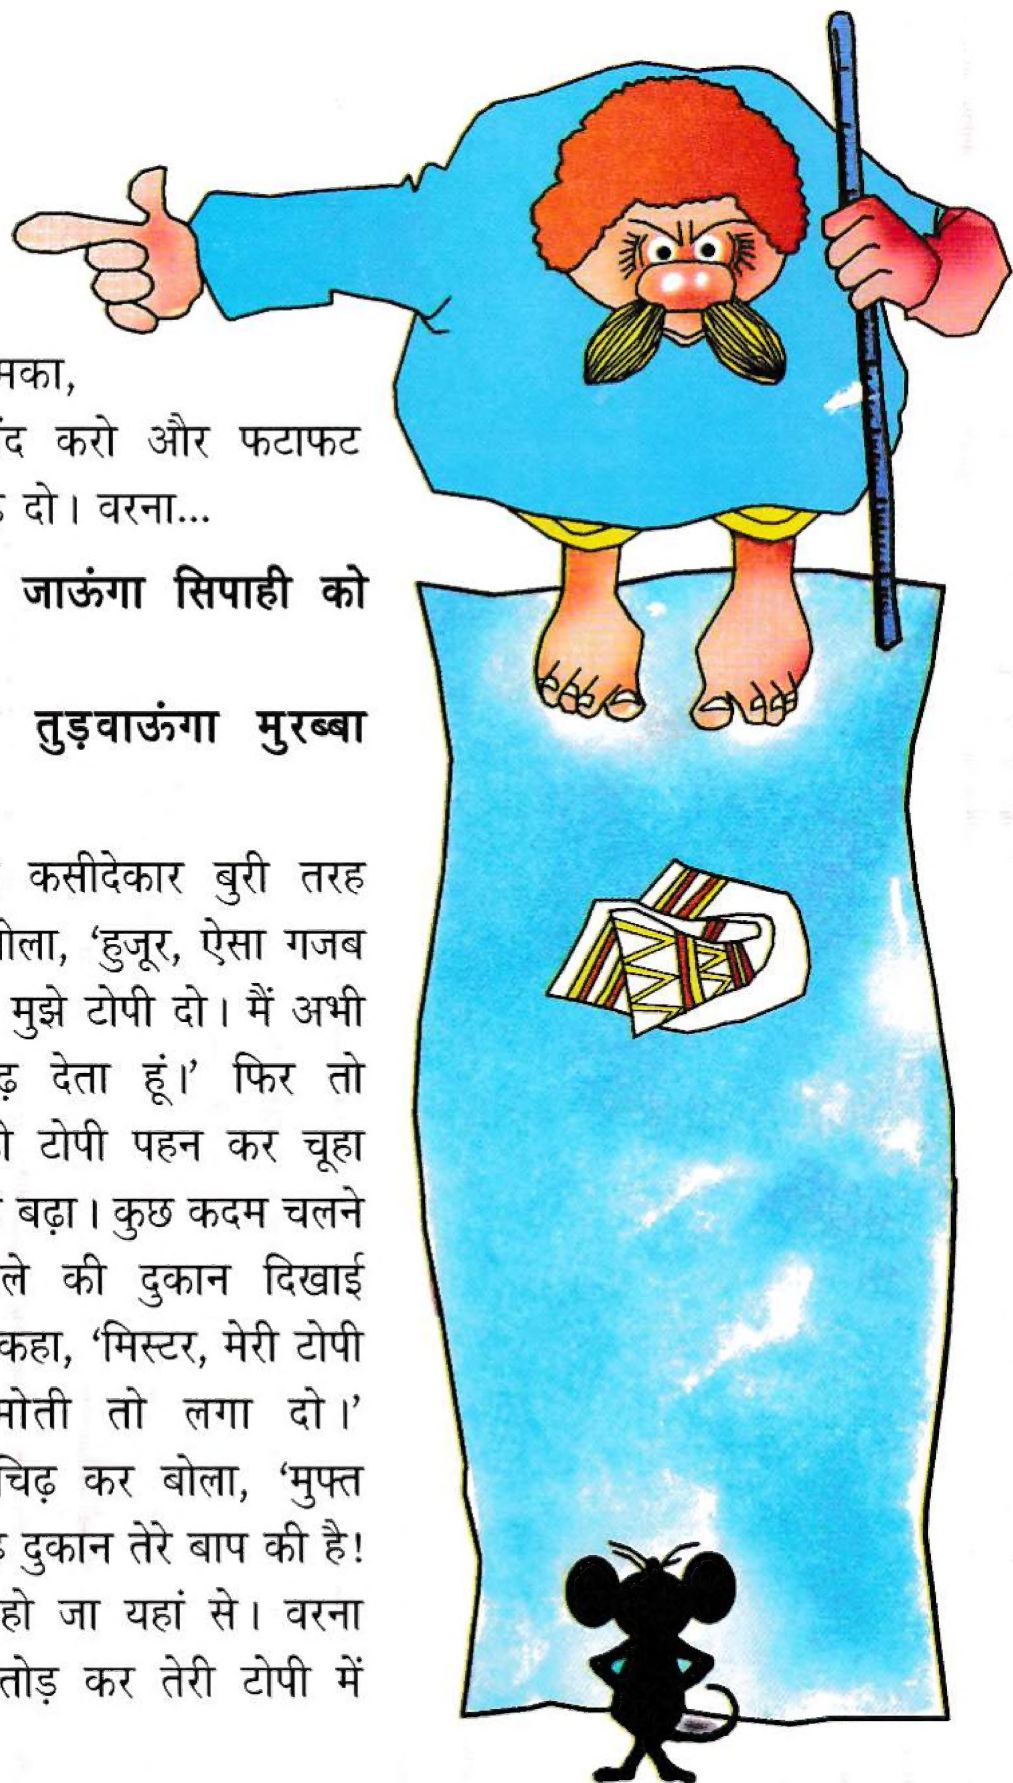 मका,
ंद करो और फटाफट
दो। वरना...
जाऊंगा सिपाही को
तुड़वाऊंगा मुरब्बा
कसीदेकार बुरी तरह
ोला, ‘हुजूर, ऐसा गजब
मुझे टोपी दो। मैं अभी
ढ़ देता हूं।’ फिर तो
टोपी पहन कर चूहा
बढ़ा। कुछ कदम चलने
ले की दुकान दिखाई
कहा, ‘मिस्टर, मेरी टोपी
मोती तो लगा दो।’
चिढ़ कर बोला, ‘मुफ्त
दुकान तेरे बाप की है!
हो जा यहां से। वरना
तोड़ कर तेरी टोपी में